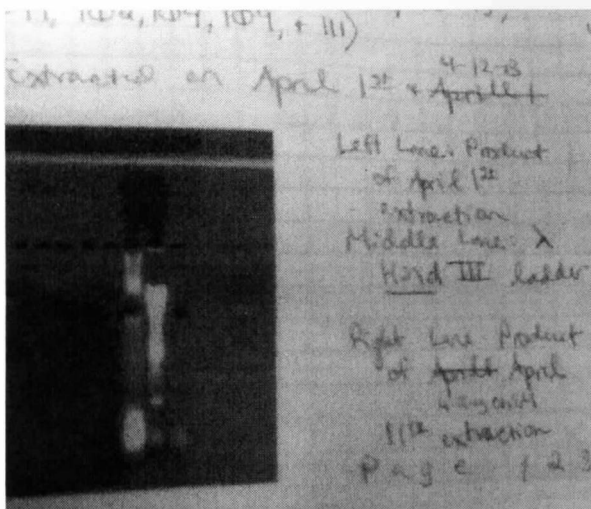 , + III)
Extracted on April 1st + 4-12-13
Left Lane: Product
of April 1st
extraction
Middle Lane: λ
Hind III ladder
Right Lane Product
of April
11th extraction
Page 123